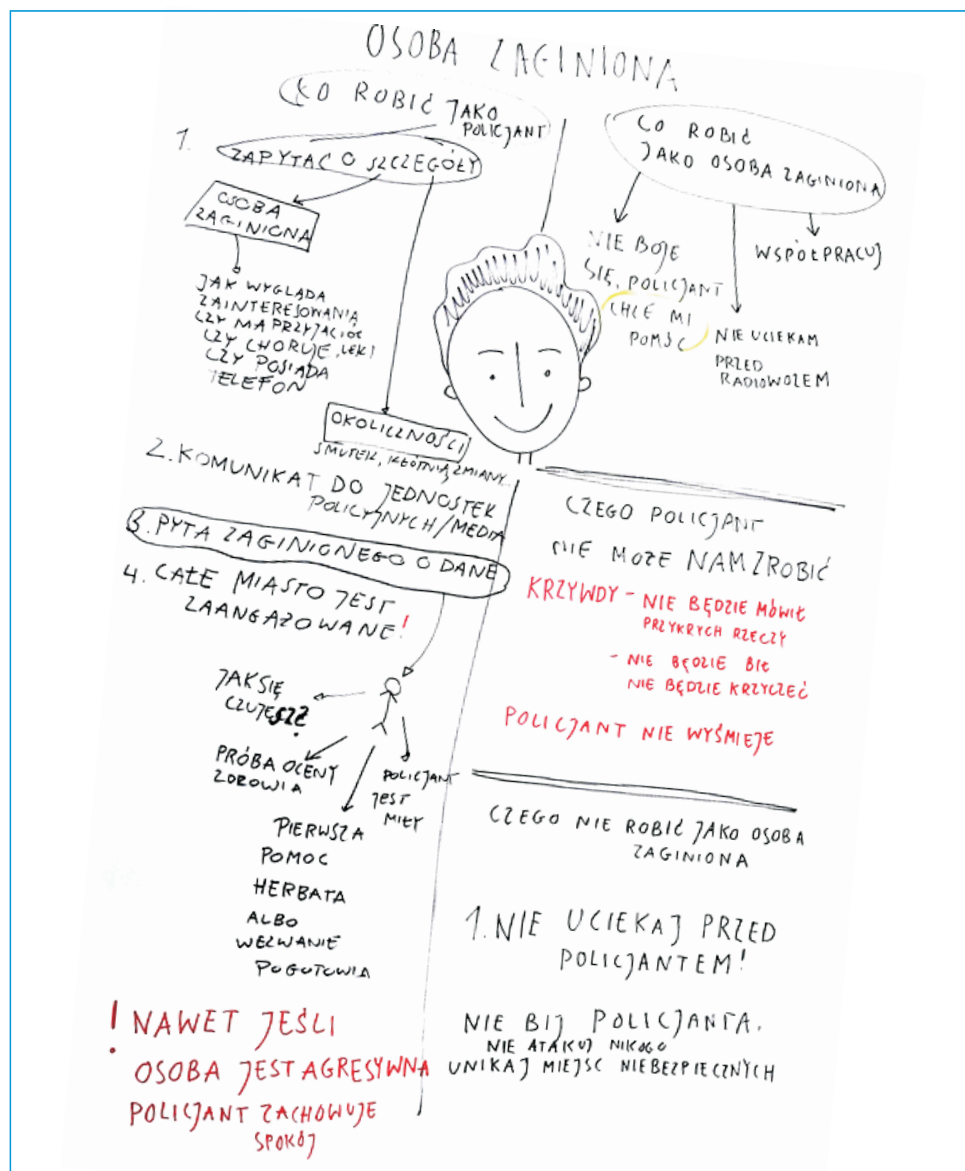 OSOBA ZAGINIONA
CO ROBIĆ JAKO
POLICJANT
1.
ZAPYTAĆ O SZCZEGÓŁY
OSOBA
ZAGINIONA
JAK WYGLĄDA
ZAINTERESOWANIA
CZY MA PRZYJACIÓŁ
CZY CHORUJE, LEKI
CZY POSIADA
TELEFON
OKOLICZNOŚCI
SMUTEK, KŁÓTNIA, ZMIANY
2. KOMUNIKAT DO JEDNOSTEK
POLICYJNYCH/MEDIA
3. PYTA ZAGINIONEGO O DANE
4. CAŁE MIASTO JEST
ZAANGAŻOWANE!
JAK SIĘ
CZUJESZ?
PRÓBA OCENY
ZDROWIA
POLICJANT
JEST
MIŁY
PIERWSZA
POMOC
HERBATA
ALBO
WEZWANIE
POGOTOWIA
! NAWET JEŚLI
OSOBA JEST AGRESYWNA
POLICJANT ZACHOWUJE
SPOKÓJ
CO ROBIĆ
JAKO OSOBA ZAGINIONA
NIE BOJE
SIĘ, POLICJANT
CHCE MI
POMÓC
NIE UCIEKAM
PRZED
RADIOWOZEM
WSPÓŁPRACUJ
CZEGO POLICJANT
NIE MOŻE NAM ZROBIĆ
KRZYWDY - NIE BĘDZIE MÓWIŁ
PRZYKRYCH RZECZY
- NIE BĘDZIE BIŁ
NIE BĘDZIE KRZYCZEĆ
POLICJANT NIE WYŚMIEJE
CZEGO NIE ROBIĆ JAKO OSOBA
ZAGINIONA
1. NIE UCIEKAJ PRZED
POLICJANTEM!
NIE BIJ POLICJANTA.
NIE ATAKUJ NIKOGO
UNIKAJ MIEJSC NIEBEZPIECZNYCH